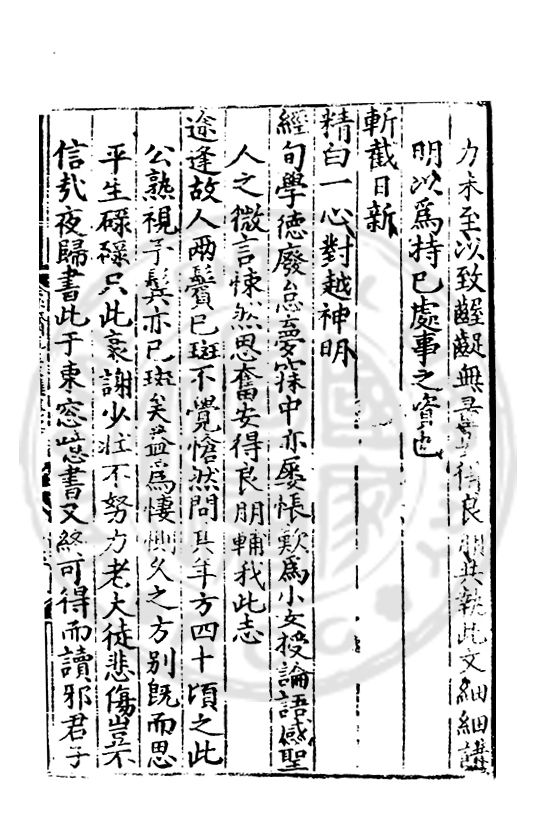 力未至以致齟齬無得良朋共執此文細細講
明以爲持已處事之資也
斬截日新
精白一心對越神明
經旬學德廢怠夢寐中亦屡悵歎爲小女授論語感聖
人之微言悚然思奮安得良朋輔我此志
途逢故人兩鬢已斑不覺愴然問其年方四十頃之此
公熟視予鬓亦已斑矣益爲悽惻久之方别旣而思
平生碌碌只此衰謝少壮不努力老大徒悲傷豈不
信㢤夜歸書此于東窓嗟書又終可得而讀邪君子